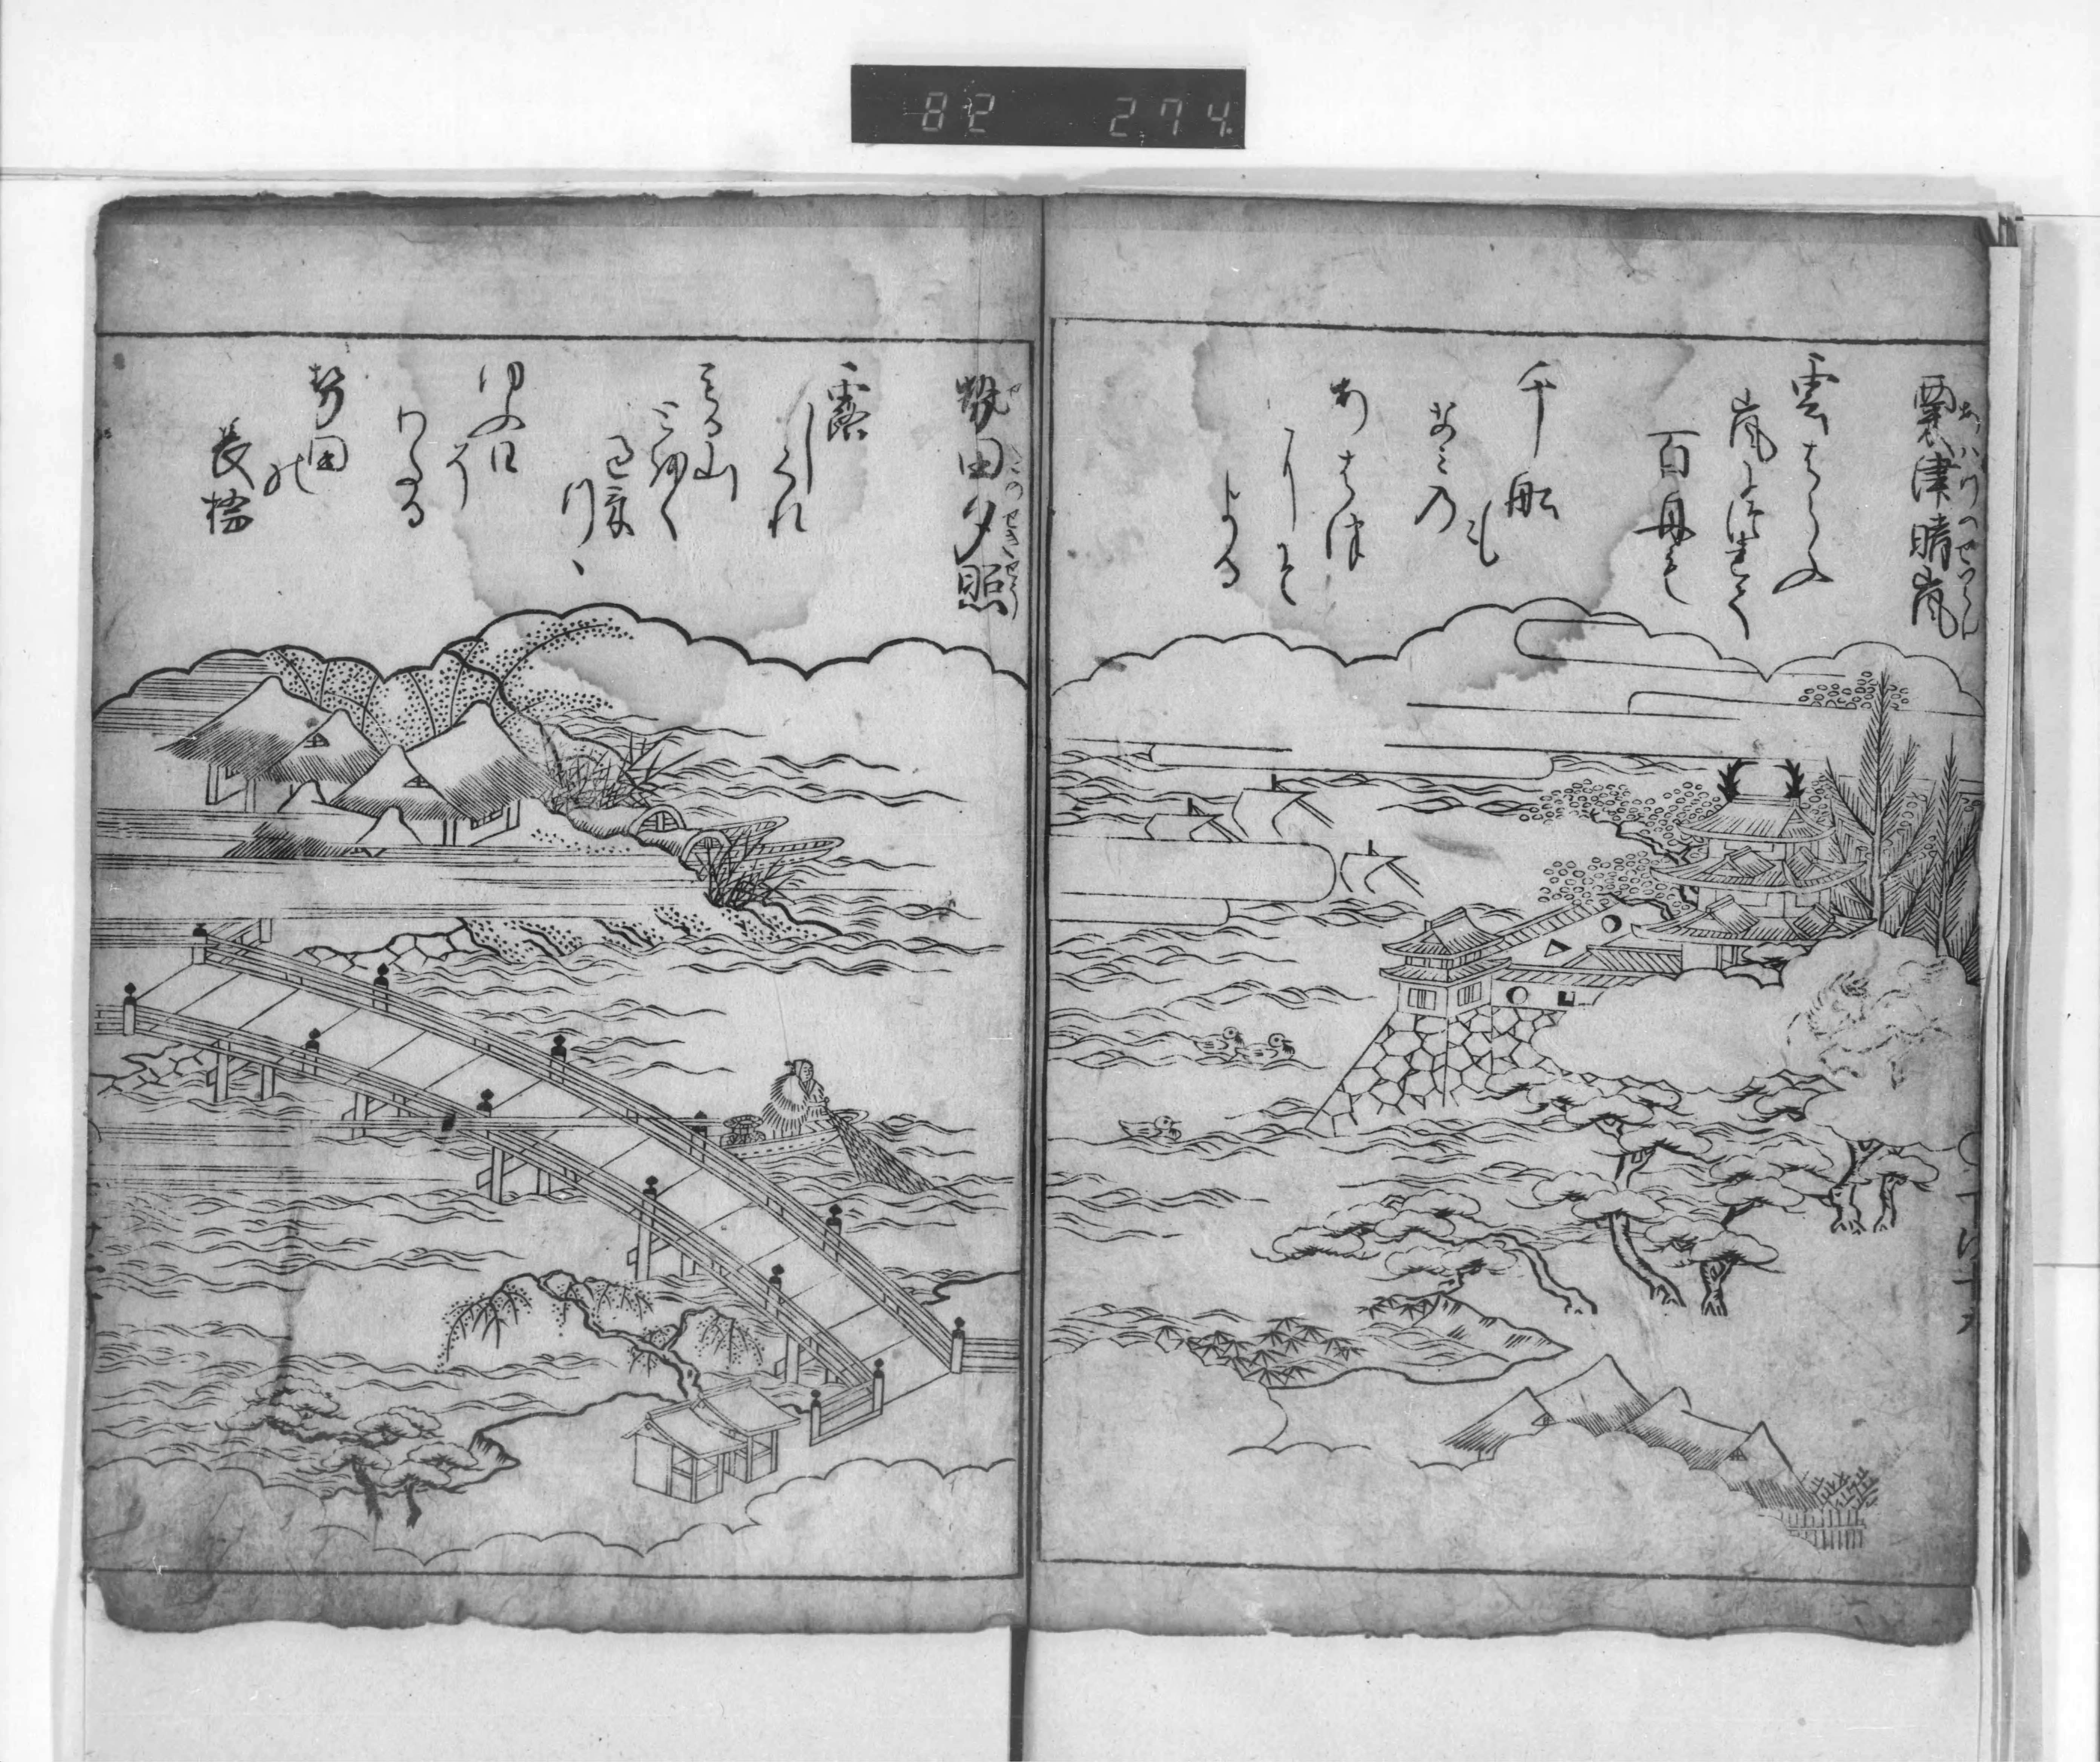 82 274
粟津晴嵐
あはづのせいらん
雲はらふ
嵐につれて
百舟も
千船も
なみの
あはつ
にそ
よる
勢田夕照
せたのせきせう
露
しくれ
もる山
遠く
過来
つゝ
夕日の
わたる
勢田
の
長橋